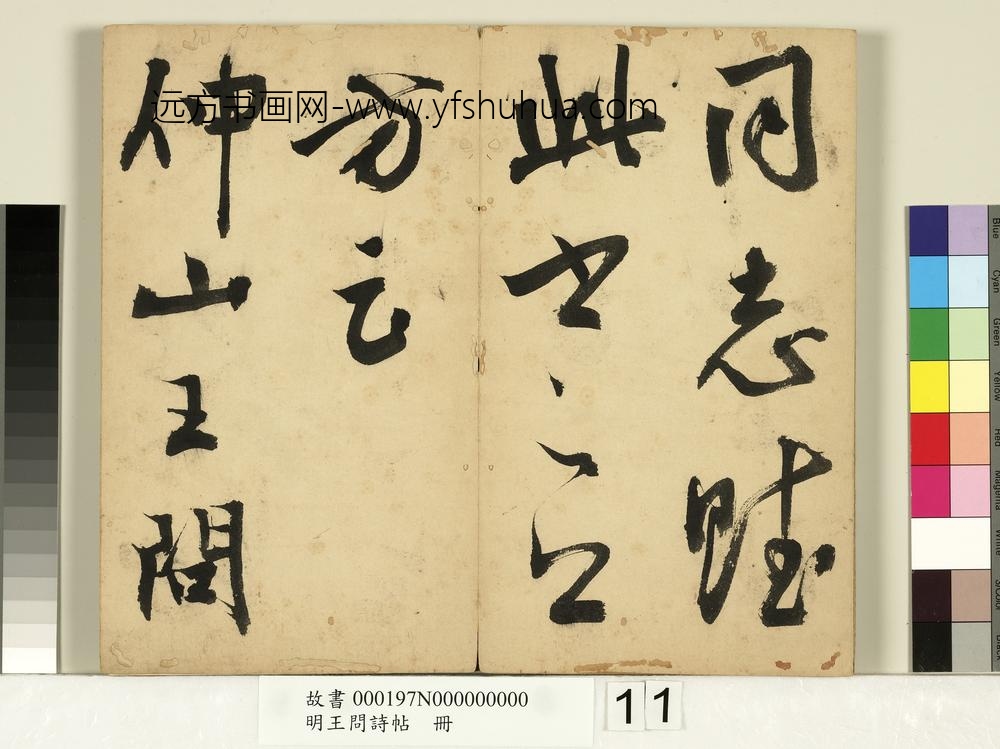 远方书画网-www.yfshuhua.com
同志賦
此
方云
仲山王問
故書 000197N000000000
明王問詩帖 冊
11
Blue
Cyan
Green
Yellow
Red
Magenta
White
3/Color
Black